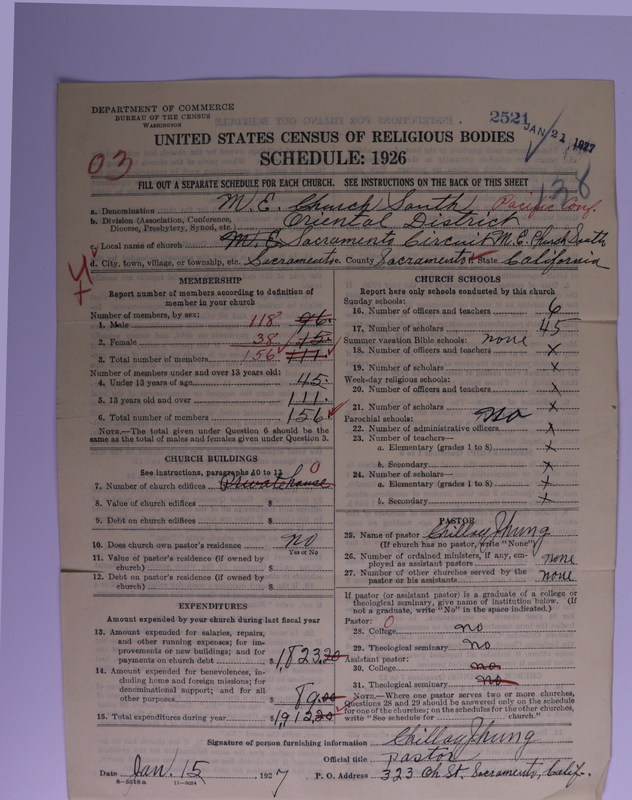 DEPARTMENT OF COMMERCE
BUREAU OF THE CENSUS
WASHINGTON
2521 JAN 21 1927
UNITED STATES CENSUS OF RELIGIOUS BODIES
SCHEDULE: 1926
03
138
FILL OUT A SEPARATE SCHEDULE FOR EACH CHURCH. SEE INSTRUCTIONS ON THE BACK OF THIS SHEET
a. Denomination M. E. Church South Pacific Conf.
b. Division (Association, Conference, Diocese, Presbytery, Synod, etc.) Oriental District
c. Local name of church M. E. Sacramento Circuit M. E. Church South
d. City, town, village, or township, etc. Sacramento e. County Sacramento f. State California
MEMBERSHIP
Report number of members according to definition of
member in your church
Number of members, by sex:
1. Male 118 96.
2. Female 38 15.
3. Total number of members 156 111
Number of members under and over 13 years old:
4. Under 13 years of age 45.
5. 13 years old and over 111.
6. Total number of members 156
NOTE.—The total given under Question 6 should be the
same as the total of males and females given under Question 3.
CHURCH BUILDINGS
See instructions, paragraphs 10 to 13
7. Number of church edifices Private house 0
8. Value of church edifices $
9. Debt on church edifices $
10. Does church own pastor's residence no
Yes or No
11. Value of pastor's residence (if owned by
church) $
12. Debt on pastor's residence (if owned by
church) $
EXPENDITURES
Amount expended by your church during last fiscal year
13. Amount expended for salaries, repairs,
and other running expenses; for im-
provements or new buildings; and for
payments on church debt $1,823.20
14. Amount expended for benevolences, in-
cluding home and foreign missions; for
denominational support; and for all
other purposes 89.00
15. Total expenditures during year $1,912.20
CHURCH SCHOOLS
Report here only schools conducted by this church
Sunday schools:
16. Number of officers and teachers 6
17. Number of scholars 45
Summer vacation Bible schools: none
18. Number of officers and teachers x
19. Number of scholars x
Week-day religious schools:
20. Number of officers and teachers x
21. Number of scholars x
Parochial schools: no
22. Number of administrative officers x
23. Number of teachers—
a. Elementary (grades 1 to 8) x
b. Secondary x
24. Number of scholars—
a. Elementary (grades 1 to 8) x
b. Secondary x
PASTOR
25. Name of pastor
(If church has no pastor, write "None")
26. Number of ordained ministers, if any, em-
ployed as assistant pastors none
27. Number of other churches served by the
pastor or his assistants none
If pastor (or assistant pastor) is a graduate of a college or
theological seminary, give name of institution below. (If
not a graduate, write "No" in the space indicated.)
Pastor: 0
28. College no
29. Theological seminary no
Assistant pastor:
30. College no
31. Theological seminary no
NOTE.—Where one pastor serves two or more churches,
Questions 28 and 29 should be answered only on the schedule
for one of the churches; on the schedules for the other churches,
write "See schedule for church."
Signature of person furnishing information
Official title pastor
Date Jan. 15, 1927 P. O. Address 323 Oh St. Sacramento, Calif.